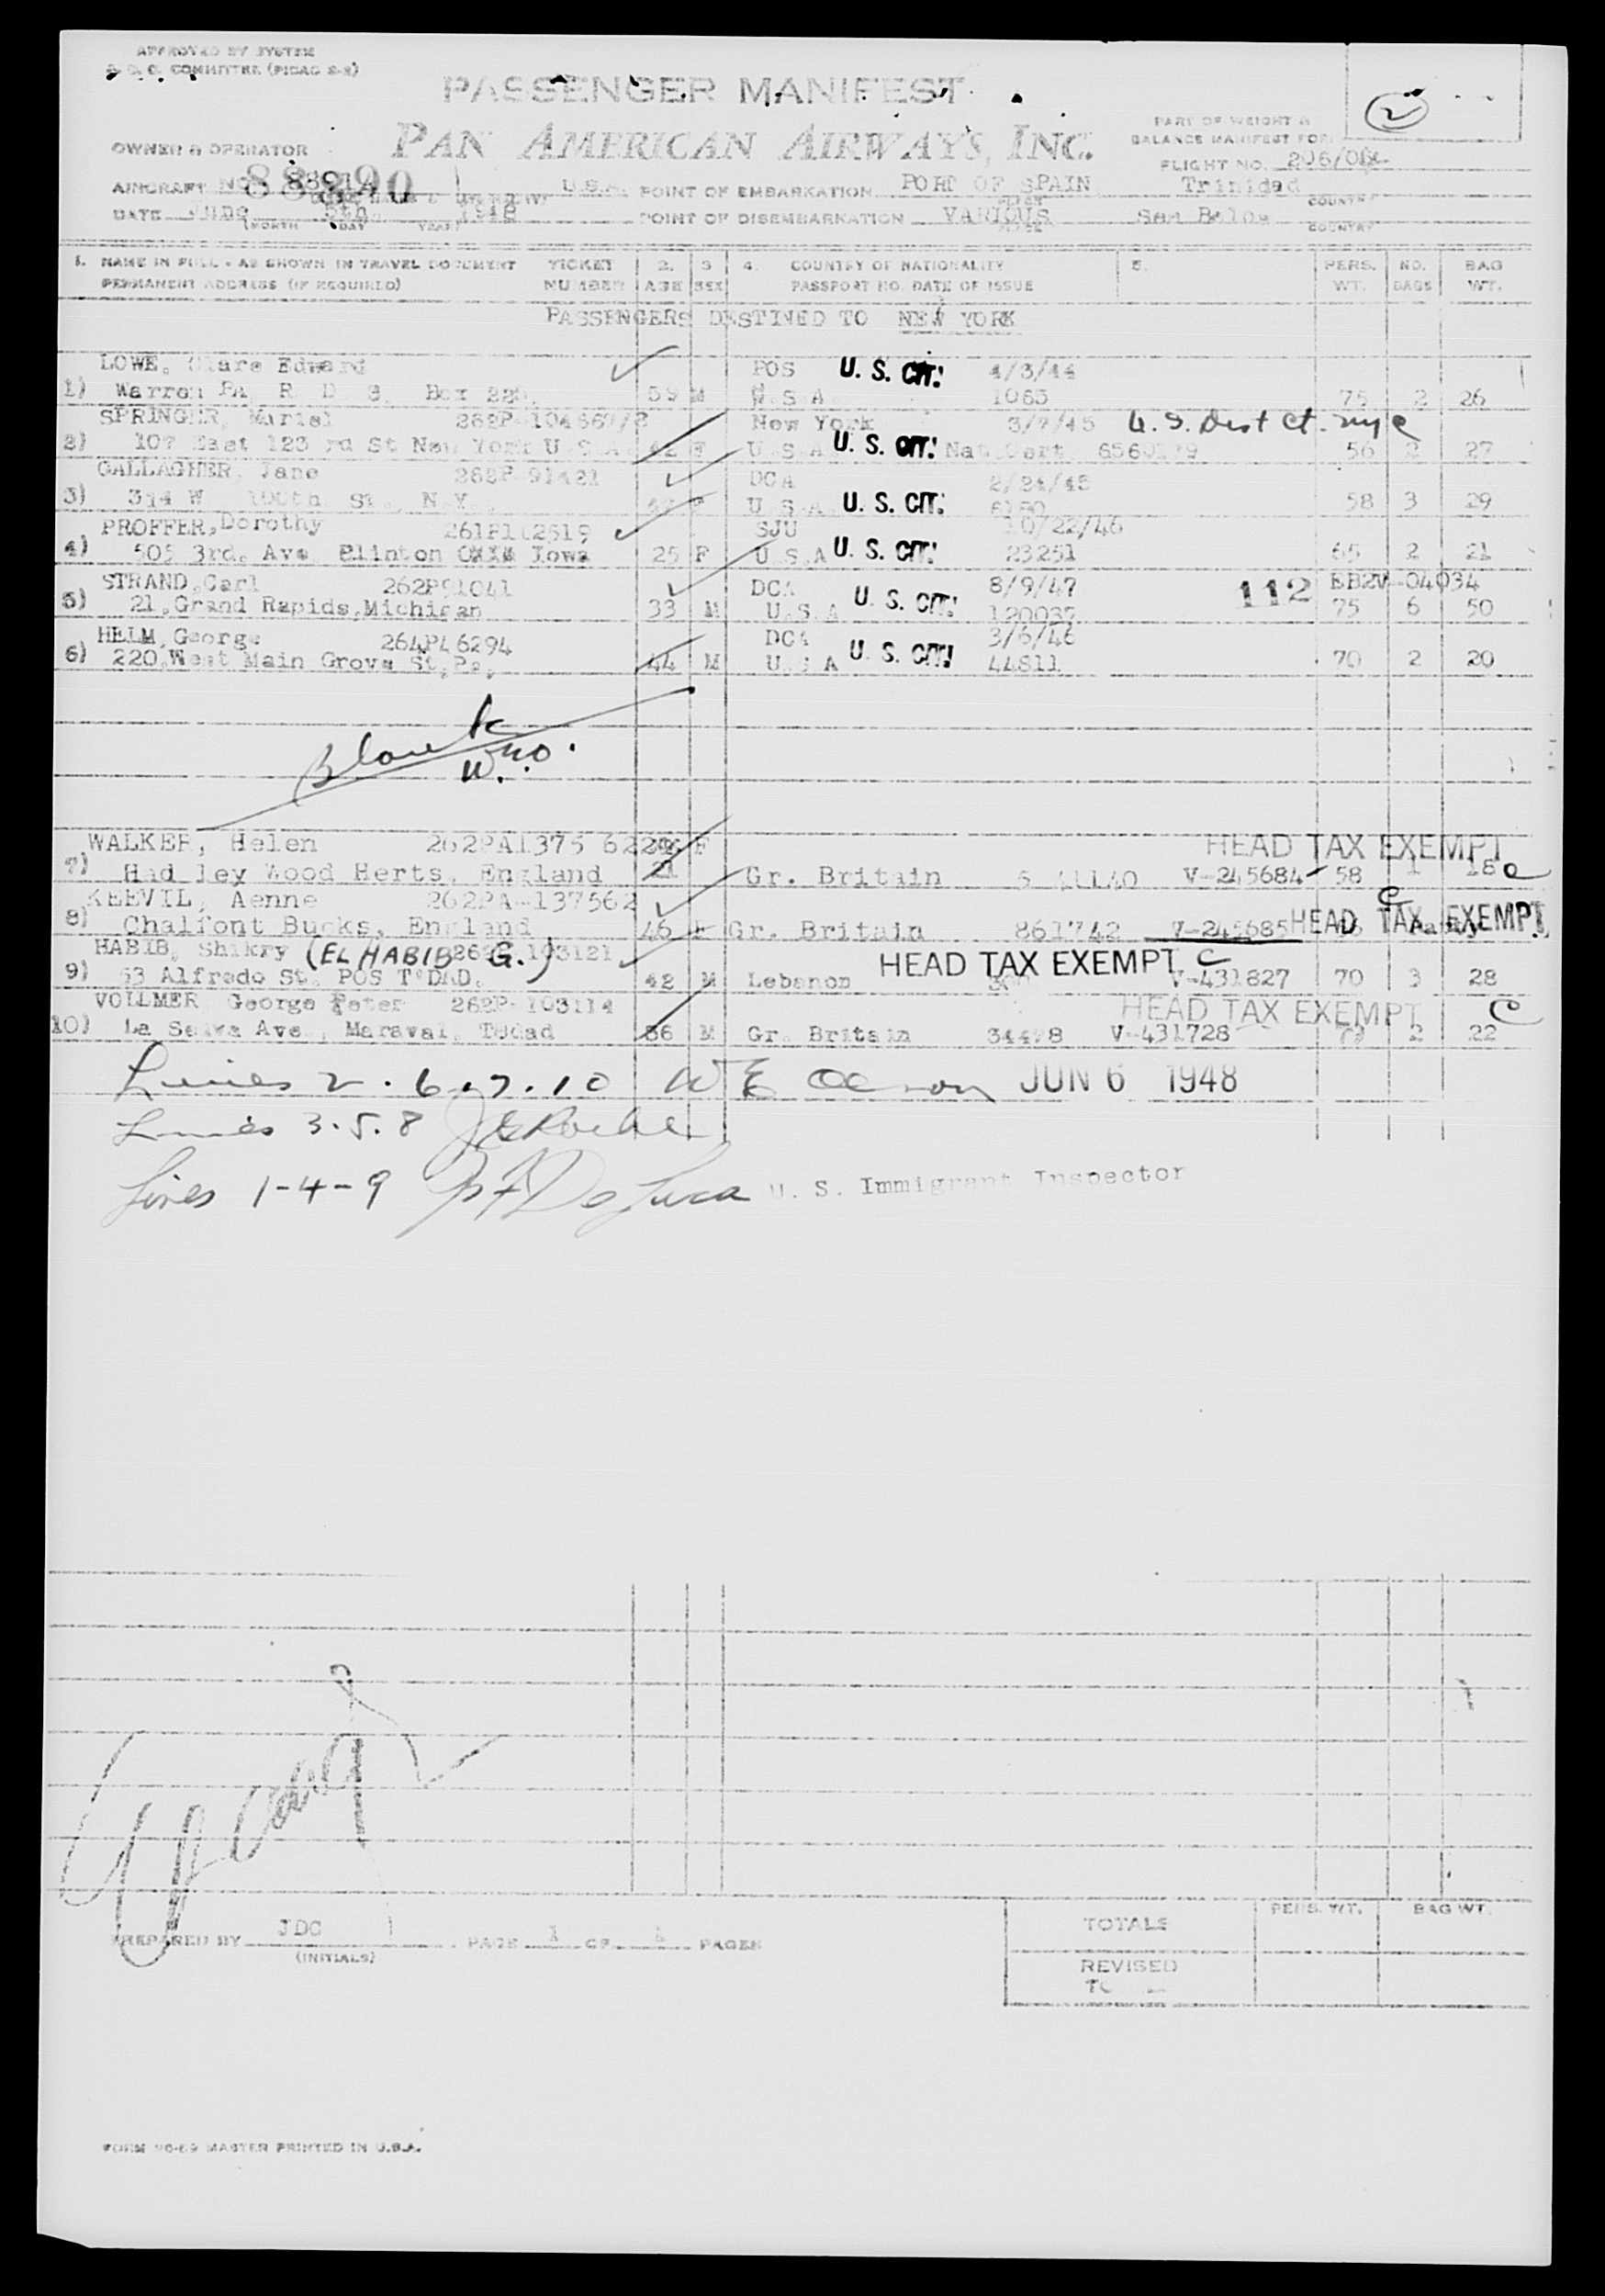 APPROVED BY SYSTEM
COMMITTEE (PICAO 2-2)
PASSENGER MANIFEST
2
PART OF WEIGHT &
BALANCE MANIFEST FOR
OWNER & OPERATOR PAN AMERICAN AIRWAYS, INC.
FLIGHT NO. 206/
AIRCRAFT NC U.S.A. POINT OF EMBARKATION PORT OF SPAIN Trinidad
PLACE COUNTRY
DATE June 5th 1948 POINT OF DISEMBARKATION VARIOUS
(MONTH DAY YEAR) PLACE COUNTRY
1. NAME IN FULL - AS SHOWN IN TRAVEL DOCUMENT TICKET 2. 3 4. COUNTRY OF NATIONALITY 5. PERS. NO. BAG
PERMANENT ADDRESS (IF REQUIRED) NUMBER AGE SEX PASSPORT NO. DATE OF ISSUE WT. BAGS WT.
PASSENGERS DESTINED TO NEW YORK
LOWE, Edward POS U. S. CIT. 4/3/44
1) Warren PA R D 3, Box 59 M U S A 1065 75 2 26
SPRINGER, Muriel 262P 104667/8 New York 3/7/45 U.S. Dist Ct. nyc
2) 107 East 123 rd St New York U S A 42 F U S A U. S. CIT. Nat Cert 56 2 27
GALLAGHER, Jane 262P 91421 DCA 2/24/45
3) 314 W 100th St., N.Y. F U S A U. S. CIT. 58 3 29
PROFFER, Dorothy 261P102519 SJU 10/22/46
4) 505 3rd. Ave Clinton Iowa 25 F U.S.A U. S. CIT. 23251 65 2 21
STRAND, Carl 262P91041 DCA 8/9/47 112 EB2V-04034
5) 21, Grand Rapids, Michigan 33 M U.S.A U. S. CIT. 120037 75 6 50
HELM, George 264P46294 DCA 3/6/46
6) 220, West Main Grove St, Pa, 44 M U.S A U. S. CIT. 44811 70 2 20
Blank
W.
WALKER, Helen 262PA1375 F HEAD TAX EXEMPT
7) Hadley Wood Herts, England 21 Gr. Britain V-245684 58 1 18 c
KEEVIL, Aenne 262PA-137562 c
8) Chalfont Bucks, England 46 F Gr. Britain 861742 V-245685 HEAD TAX EXEMPT
HABIB, Shikry (EL HABIB G.) 103121 HEAD TAX EXEMPT C
9) 53 Alfredo St. POS T'DAD. 42 M Lebanon V-431827 70 3 28
VOLLMER George Peter 262P-103114 HEAD TAX EXEMPT C
10) Ave., Maraval, 36 M Gr. Britain V-431728 2 22
Lines 2. 6. 7. 10 W E JUN 6 1948
Lines 3. 5. 8
Lines 1-4-9 De Luca U. S. Immigrant Inspector
PREPARED BY JDC PAGE 1 OF PAGES
(INITIALS)
PERS. WT. BAG WT.
TOTALS
REVISED
FORM MASTER PRINTED IN U.S.A.